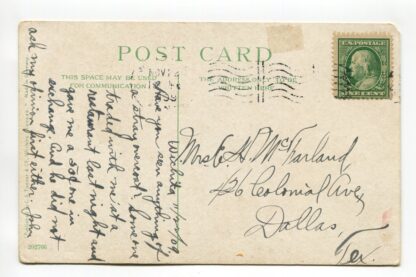 POST CARD
THIS SPACE MAY BE USED
FOR COMMUNICATION
THE ADDRESS ONLY TO BE
WRITTEN HERE
NOV
U.S. POSTAGE
ONE CENT
Wichita 11/20/09
Have you seen anything of
a stray overcoat? Someone
traded with me at a
restaurant last night and
gave me a sod one in
exchange. And he did not
ask my opinion first either. John
Mrs E A McFarland
26 Colonial Ave,
Dallas,
Tex.
202766